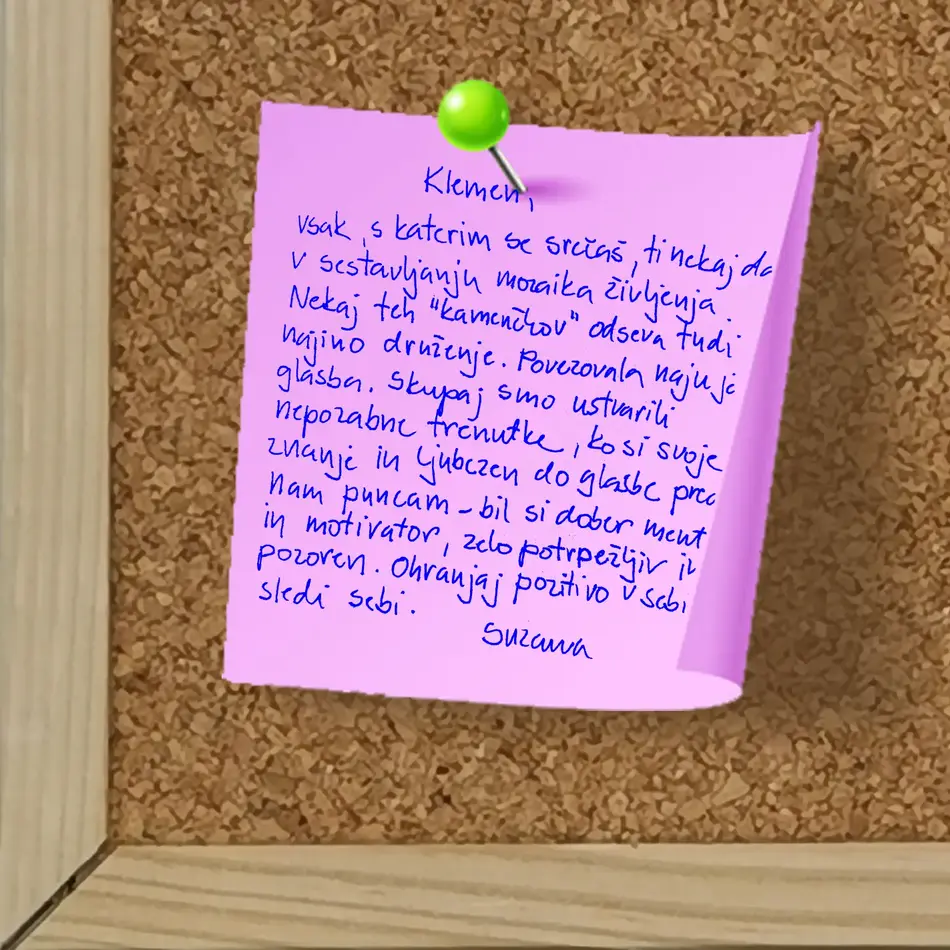 Klemen,
vsak, s katerim se srečaš, ti nekaj da
v sestavljanju mozaika življenja.
Nekaj teh "kamenčkov" odseva tudi
najino druženje. Povezovala naju je
glasba. Skupaj smo ustvarili
nepozabne trenutke, ko si svoje
znanje in ljubezen do glasbe pred
nam puncam - bil si dober ment
in motivator, zelo potrpežljiv in
pozoren. Ohranjaj pozitivo v sebi
sledi sebi.
Suzana